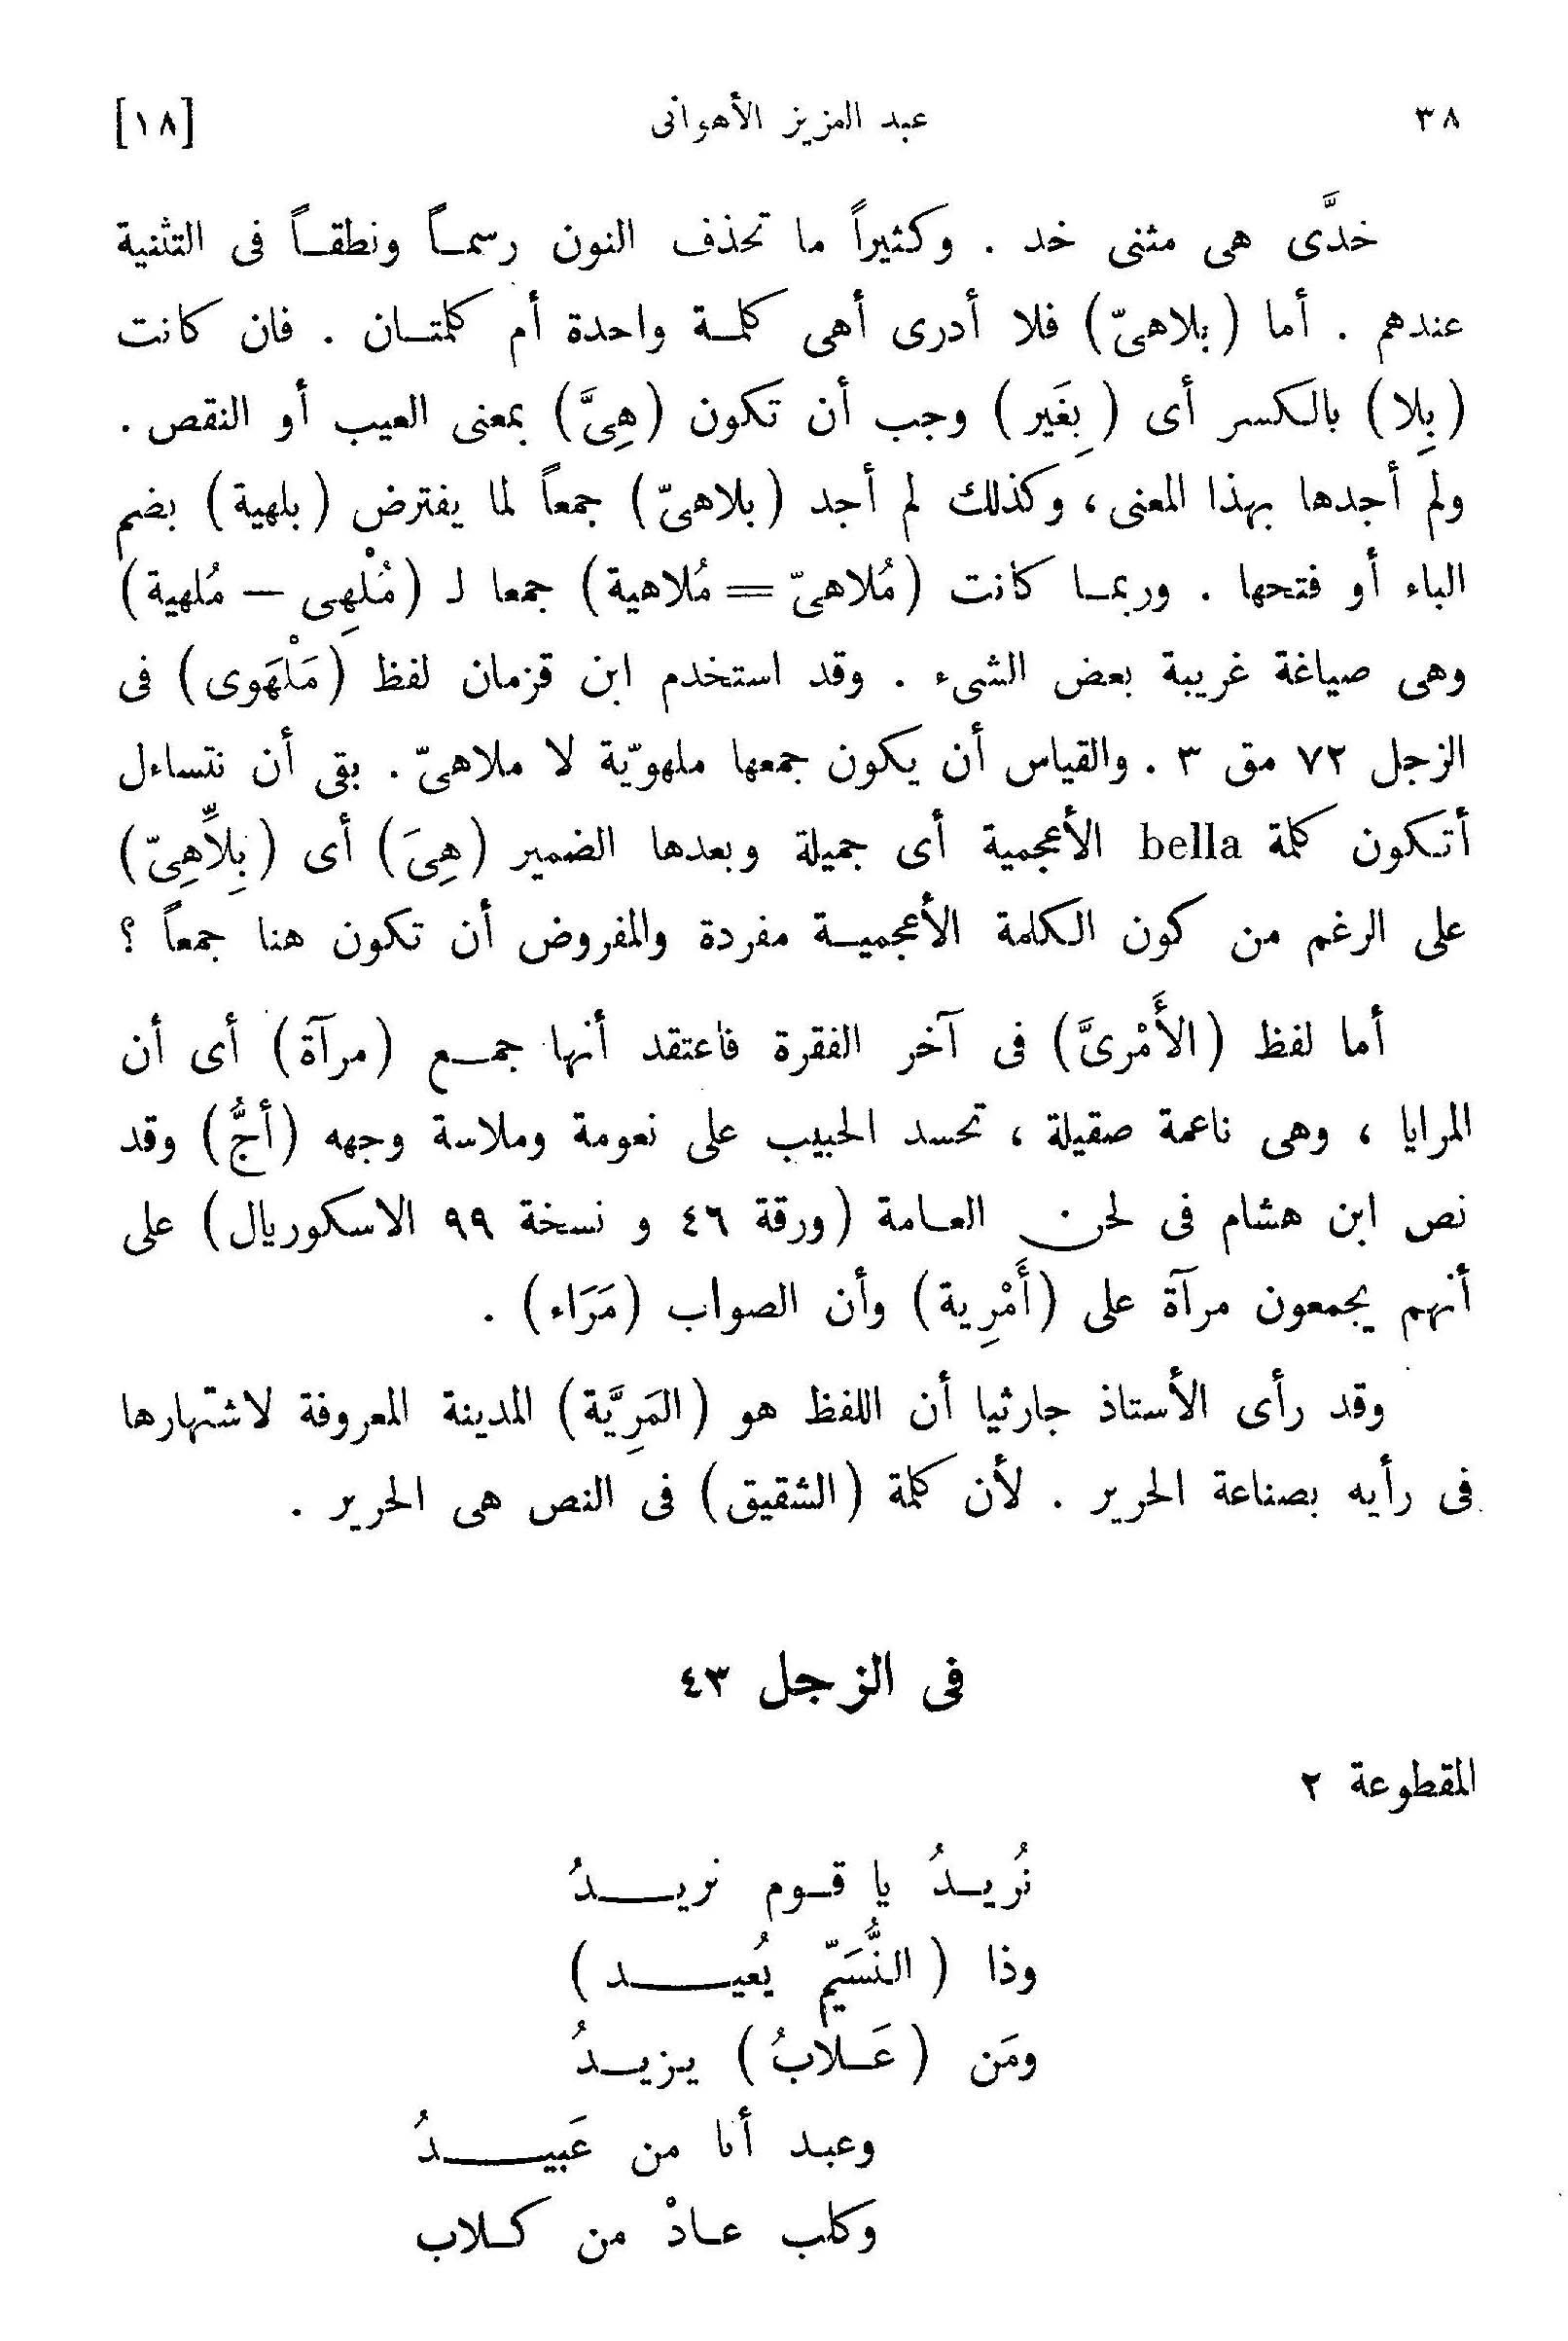 ٣٨ عبد العزيز الأهوانى [١٨]
خدَّى هى مثنى خد . وكثيراً ما تحذف النون رسماً ونطقاً فى التثنية
عندهم . أما (بلاهىّ) فلا أدرى أهى كلمة واحدة أم كلمتان . فان كانت
(بِلا) بالكسر أى (بِغَير) وجب أن تكون (هِىَّ) بمعنى العيب أو النقص .
ولم أجدها بهذا المعنى ، وكذلك لم أجد (بلاهىّ) جمعاً لما يفترض (بلهية) بضم
الباء أو فتحها . وربما كانت (مُلاهىّ = مُلاهية) جمعا لـ (مُلْهِى – مُلهية)
وهى صياغة غريبة بعض الشىء . وقد استخدم ابن قزمان لفظ (مَلْهَوى) فى
الزجل ٧٢ مق ٣ . والقياس أن يكون جمعها ملهويّة لا ملاهىّ . بقى أن نتساءل
أتكون كلمة bella الأعجمية أى جميلة وبعدها الضمير (هِىَ) أى (بِلاِّهِىّ)
على الرغم من كون الكلمة الأعجمية مفردة والمفروض أن تكون هنا جمعاً ؟
أما لفظ (الأَمْرىَّ) فى آخر الفقرة فاعتقد أنها جمع (مرآة) أى أن
المرايا ، وهى ناعمة صقيلة ، تحسد الحبيب على نعومة وملاسة وجهه (أجُّ) وقد
نص ابن هشام فى لحن العامة (ورقة ٤٦ و نسخة ٩٩ الاسكوريال) على
أنهم يجمعون مرآة على (أَمْرِية) وأن الصواب (مَرَاء) .
وقد رأى الأستاذ جارثيا أن اللفظ هو (المَرِيَّة) المدينة المعروفة لاشتهارها
فى رأيه بصناعة الحرير . لأن كلمة (الشقيق) فى النص هى الحرير .
فى الزجل ٤٣
المقطوعة ٢
نُريدُ يا قوم نريدُ
وذا (النُّسَيّم يُعيد)
ومَن (عَلابُ) يزيدُ
وعبد أنا من عَبيدُ
وكلب عادْ من كلاب